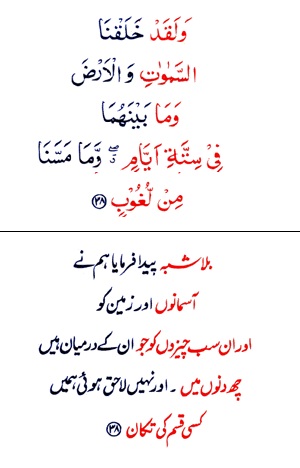 وَلَقَدْ خَلَقْنَا
السَّمٰوٰتِ وَالْاَرْضَ
وَمَا بَيْنَهُمَا
فِيْ سِتَّةِ اَيَّامٍ ۖ وَّمَا مَسَّنَا
مِنْ لُّغُوْبٍ ﴿۳۸﴾
بلاشبہ پیدا فرمایا ہم نے
آسمانوں اور زمین کو
اور ان سب چیزوں کو جو ان کے درمیان ہیں
چھ دنوں میں ۔ اور نہیں لاحق ہوئی ہمیں
کسی قسم کی تکان ﴿۳۸﴾